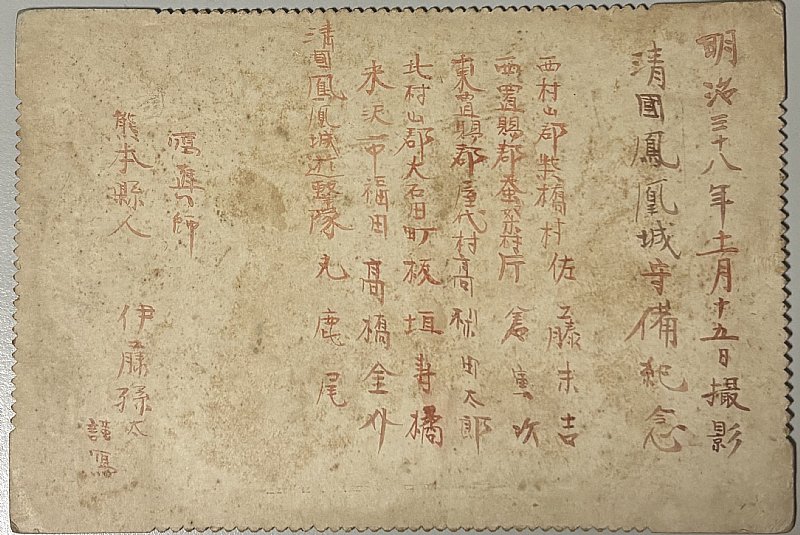 明治三十八年十二月十五日撮影
清國鳳凰城守備紀念
西村山郡柴橋村佐藤末吉
西置賜郡蚕桑村 次
東置賜郡屋代村高梨由太郎
北村山郡大石田町板垣寿橘
米沢市福田高橋金介
清國鳳凰城遊撃隊丸鹿尾
寫真師
熊本縣人 伊藤孫太
謹寫